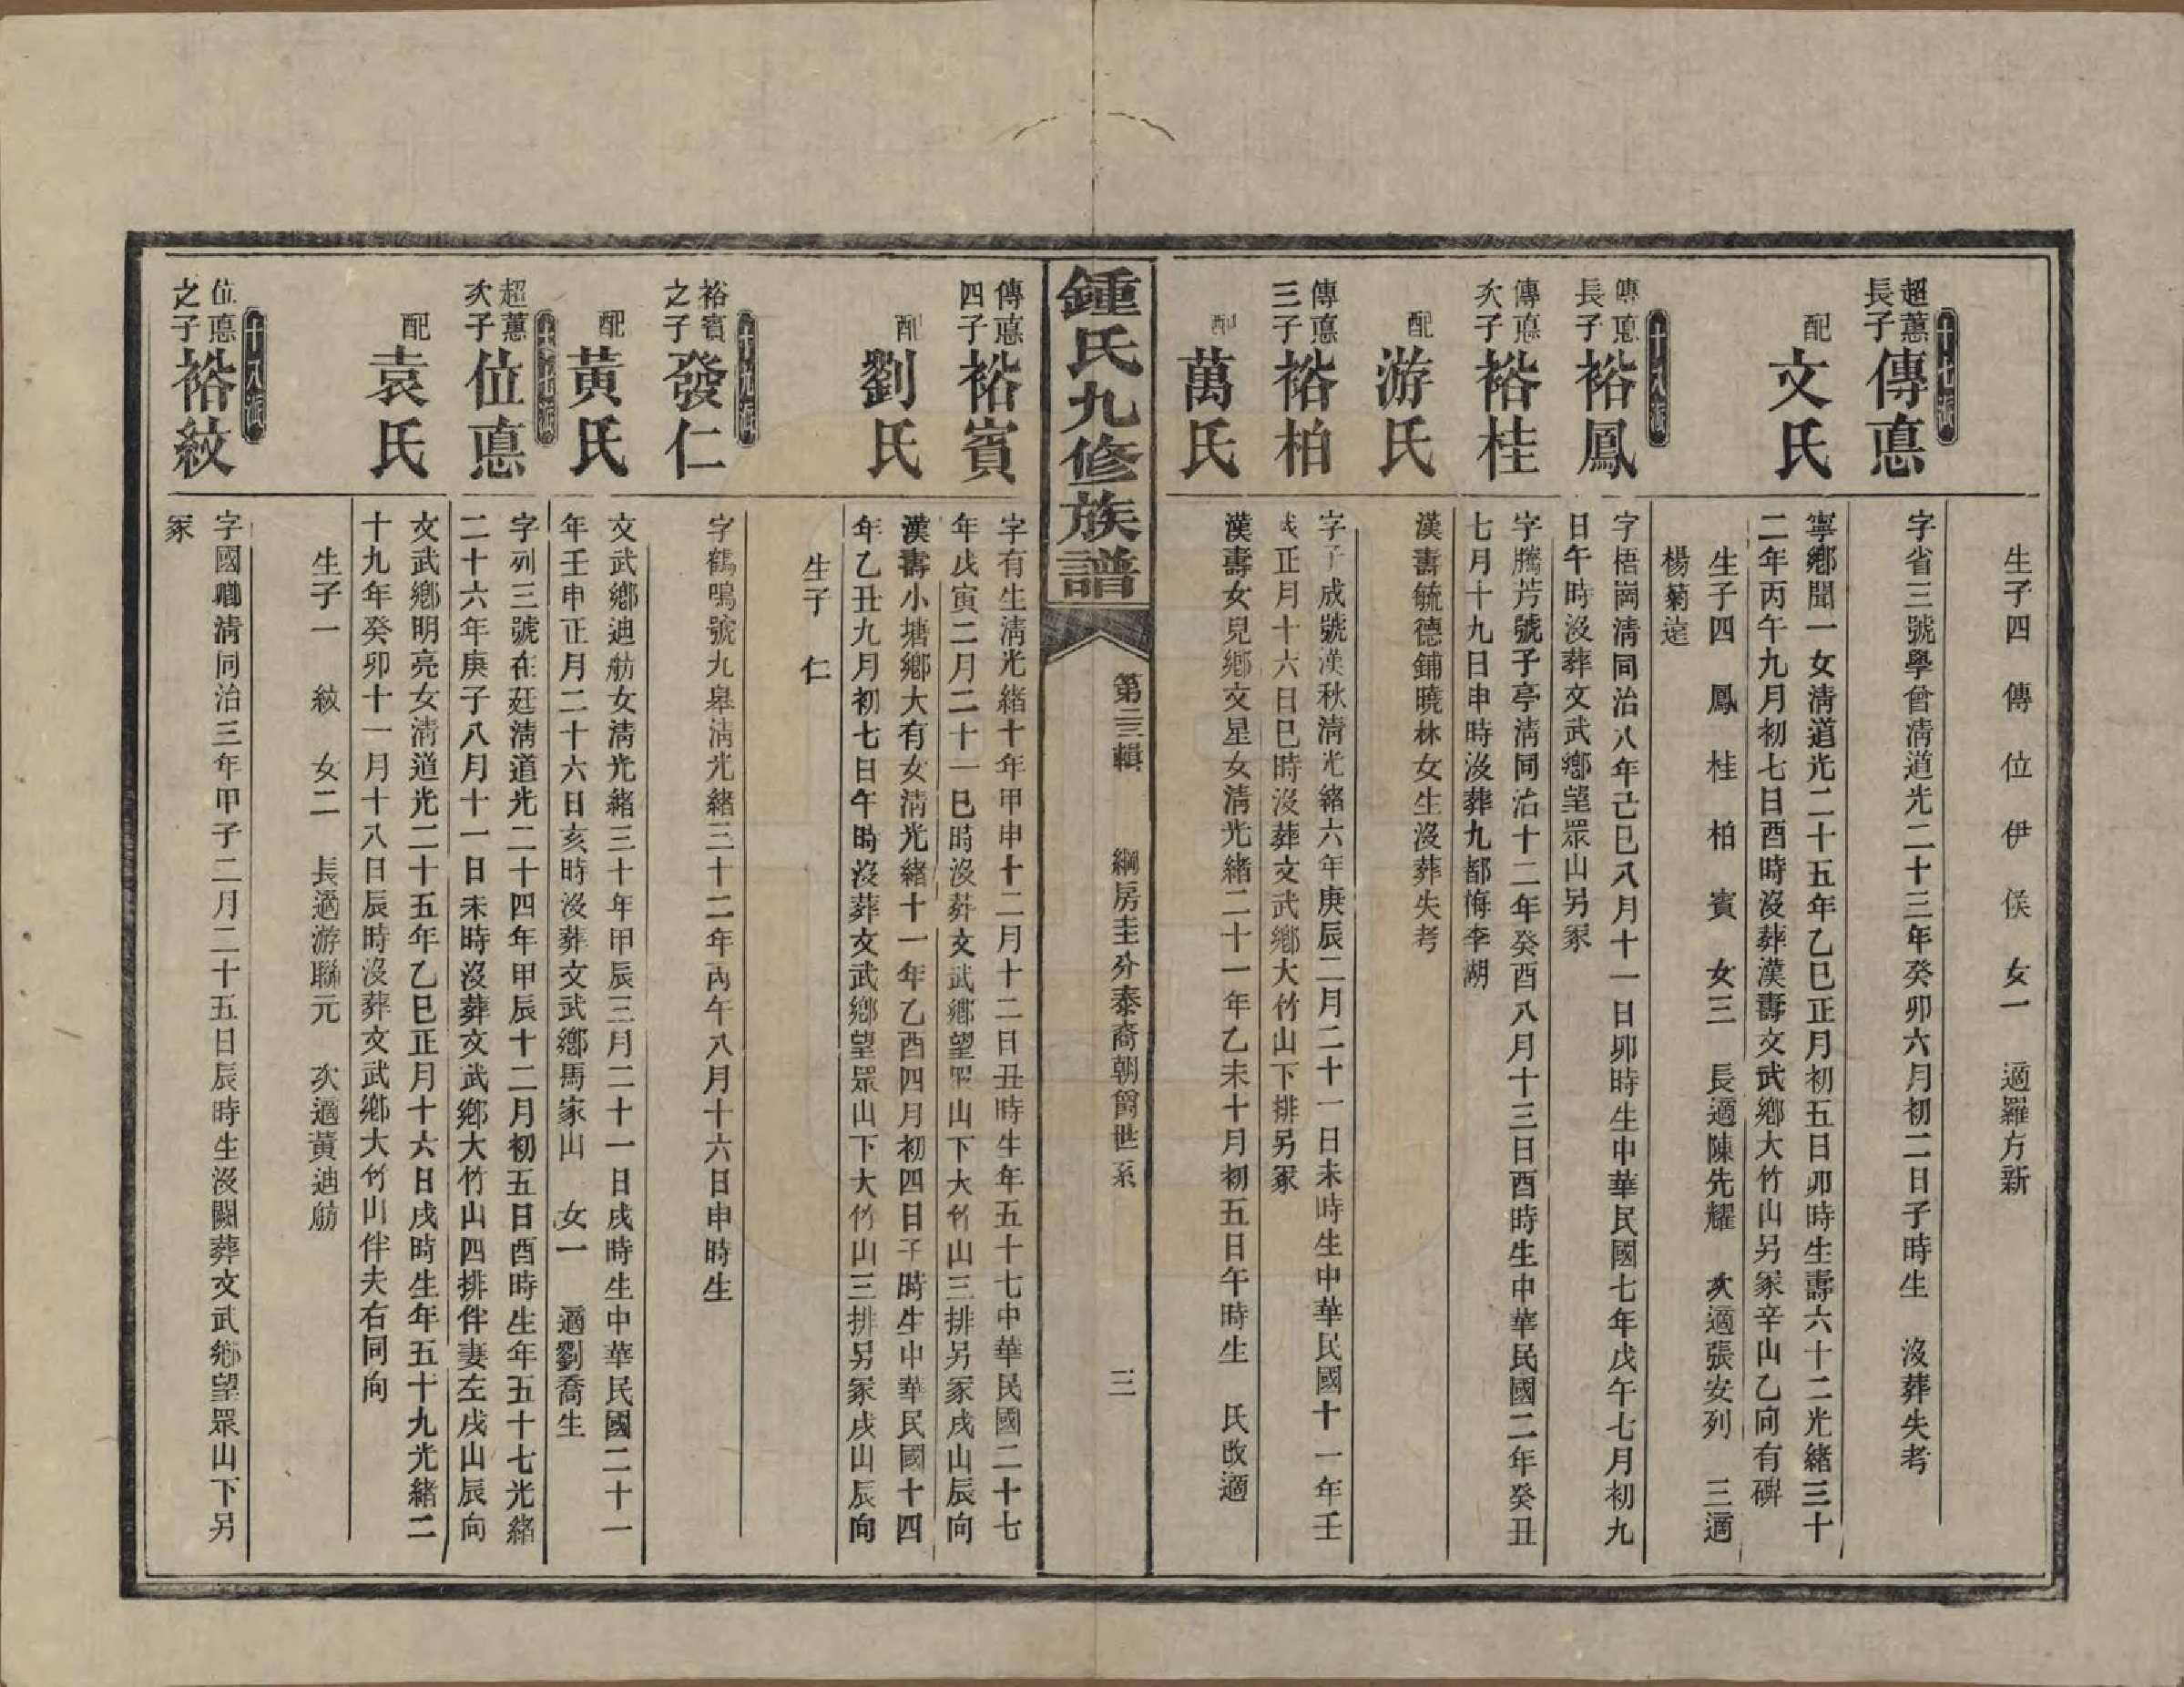 生子四　傳　位　伊　侯　女一　適羅方新
十七派
超蕙長子傳悳
字省三號學曾淸道光二十三年癸卯六月初二日子時生　沒葬失考
配文氏
寧鄉聞一女淸道光二十五年乙巳正月初五日卯時生壽六十二光緒三十
二年丙午九月初七日酉時沒葬漢壽文武鄉大竹山另冢辛山乙向有碑
生子四　鳳　桂　柏　賓　女三　長適陳先耀　次適張安列　三適
楊菊逵
十八派
傳悳長子裕鳳
字梧崗淸同治八年己巳八月十一日卯時生中華民國七年戊午七月初九
日午時沒葬文武鄉望眾山另冢
傳悳次子裕桂
字騰芳號子亭淸同治十二年癸酉八月十三日酉時生中華民國二年癸丑
七月十九日申時沒葬九都悔李湖
配游氏
漢壽毓德鋪曉林女生沒葬失考
傳悳三子裕柏
字子成號漢秋淸光緒六年庚辰二月二十一日未時生中華民國十一年壬
戌正月十六日巳時沒葬文武鄉大竹山下排另冢
配萬氏
漢壽女兒鄉文星女淸光緒二十一年乙未十月初五日午時生　氏改適
鍾氏九修族譜
第三輯
綱房圭分泰裔朝簠世系
三
傳悳四子裕賓
字有生淸光緒十年甲申十二月十二日丑時生年五十七中華民國二十七
年戊寅二月二十一巳時沒葬文武鄉望眾山下大竹山三排另冢戌山辰向
配劉氏
漢壽小塘鄉大有女淸光緒十一年乙酉四月初四日子時生中華民國十四
年乙丑九月初七日午時沒葬文武鄉望眾山下大竹山三排另冢戌山辰向
生子　仁
十九派
裕賓之子發仁
字鶴鳴號九皋淸光緒三十二年丙午八月十六日申時生
配黃氏
文武鄉迪舫女淸光緒三十年甲辰三月二十一日戌時生中華民國二十一
年壬申正月二十六日亥時沒葬文武鄉馬家山　女一　適劉喬生
十七派
超蕙次子位悳
字列三號在廷淸道光二十四年甲辰十二月初五日酉時生年五十七光緒
二十六年庚子八月十一日未時沒葬文武鄉大竹山四排伴妻左戌山辰向
配袁氏
文武鄉明亮女淸道光二十五年乙巳正月十六日戌時生年五十九光緒二
十九年癸卯十一月十八日辰時沒葬文武鄉大竹山伴夫右同向
生子一　紋　女二　長適游聯元　次適黃迪舫
十八派
位悳之子裕紋
字國珊淸同治三年甲子二月二十五日辰時生沒闕葬文武鄉望眾山下另
冢